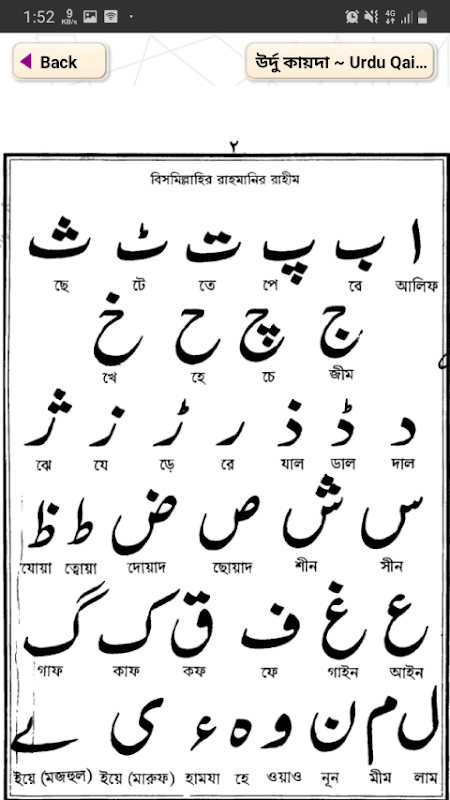 1:52 9 KB/s 4G
Back উর্দু কায়দা ~ Urdu Qai...
٢
বিসমিল্লাহির রাহমানির রাহীম
ا ب پ ت ٹ ث
আলিফ বে পে তে টে ছে
ج چ ح خ
জীম চে হে খে
د ڈ ذ ر ڑ ز ژ
দাল ডাল যাল রে ড়ে যে ঝে
س ش ص ض ط ظ
সীন শীন ছোয়াদ দোয়াদ ত্বোয়া যোয়া
ع غ ف ق ک گ
আইন গাইন ফে কফ কাফ গাফ
ل م ن و ہ ء ی ے
লাম মীম নূন ওয়াও হে হামযা ইয়ে (মারুফ) ইয়ে (মজহুল)